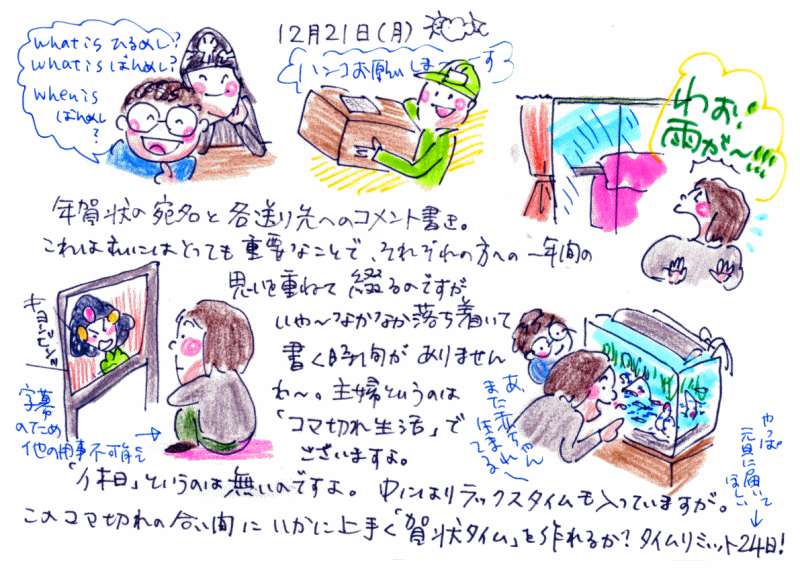 12月21日(月)
what is ひるめし?
what is ばんめし?
when is
ばんめし
?
ハンコお願いしまーーす
わぉ!
雨が〜!!!
年賀状の宛名と各送り先へのコメント書き。
これは私にはとっても重要なことで、それぞれの方への一年間の
思いを重ねて綴るのですが
いや〜なかなか落ち着いて
書く時間がありません
わ〜。主婦というのは
「コマ切れ生活」で
ございますよ。
字幕
のため
他の用事不可能で
あ、
また赤ちゃん
生まれ〜
てる〜
やっぱ
元旦に届いて
ほしい
というのは無いのですよ。中にはリラックスタイムも入っていますが。
このコマ切れの合い間にいかに上手く「賀状タイム」を作れるか?タイムリミット24日!